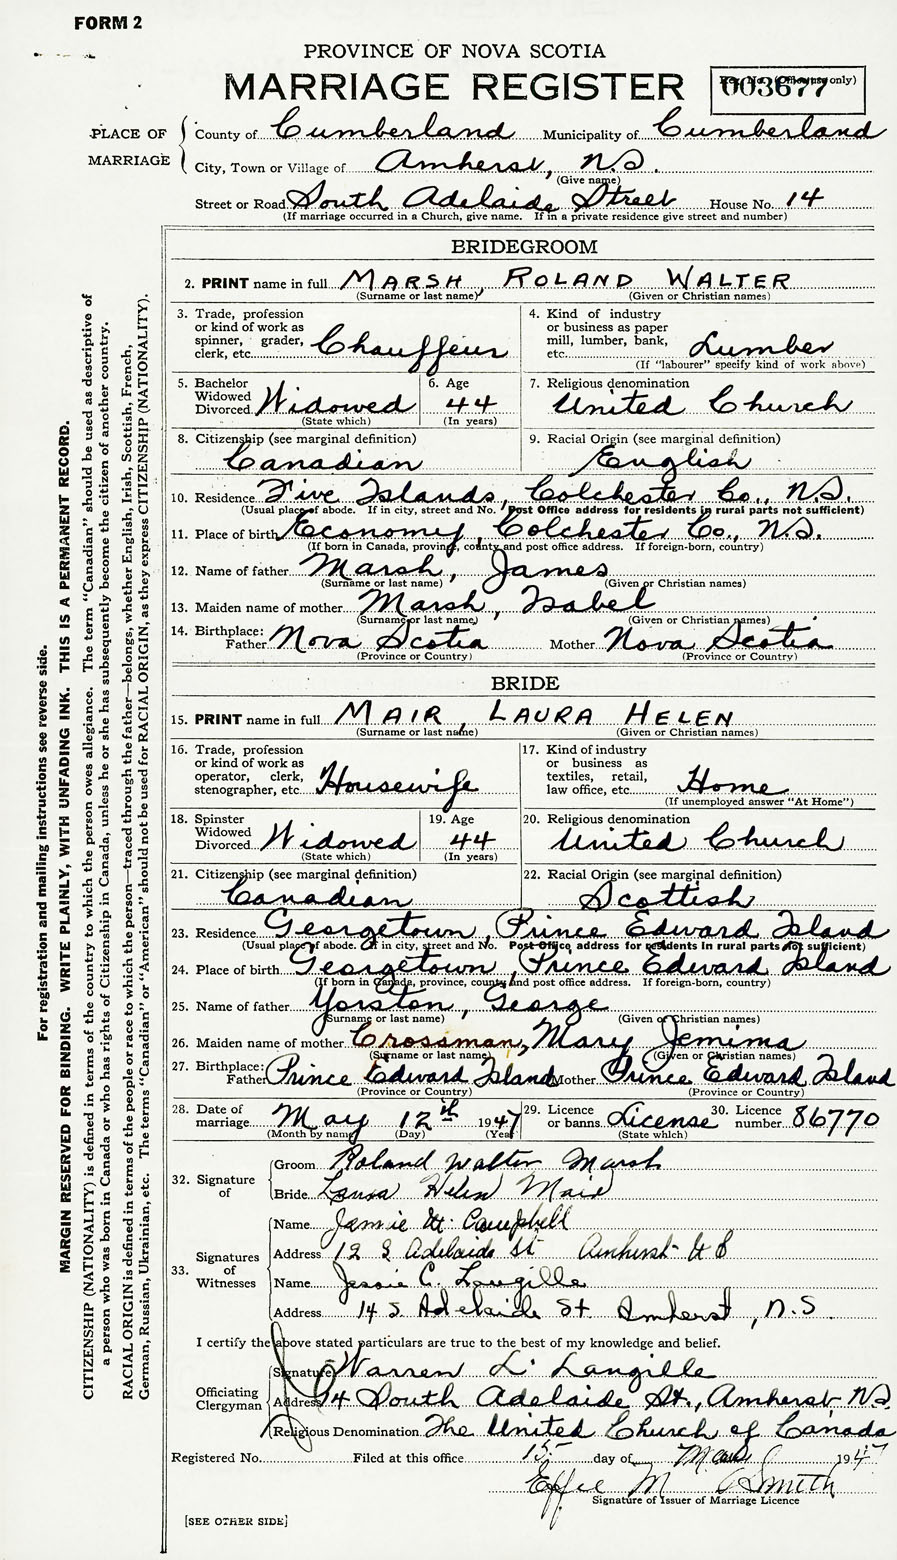 FORM 2
PROVINCE OF NOVA SCOTIA
MARRIAGE REGISTER
Reg. No. (Office use only)
003677
PLACE OF MARRIAGE
County of Cumberland Municipality of Cumberland
City, Town or Village of Amherst, N.S.
(Give name)
Street or Road South Adelaide Street House No. 14
(If marriage occurred in a Church, give name. If in a private residence give street and number)
BRIDEGROOM
2. PRINT name in full MARSH, ROLAND WALTER
(Surname or last name) (Given or Christian names)
3. Trade, profession or kind of work as spinner, grader, clerk, etc. Chauffeur
4. Kind of industry or business as paper mill, lumber, bank, etc. Lumber
(If "labourer" specify kind of work above)
5. Bachelor Widowed Divorced Widowed
(State which)
6. Age 44
(In years)
7. Religious denomination
United Church
8. Citizenship (see marginal definition)
Canadian
9. Racial Origin (see marginal definition)
English
10. Residence Five Islands, Colchester Co., N.S.
(Usual place of abode. If in city, street and No. Post Office address for residents in rural parts not sufficient)
11. Place of birth Economy, Colchester Co., N.S.
(If born in Canada, province, county and post office address. If foreign-born, country)
12. Name of father Marsh, James
(Surname or last name) (Given or Christian names)
13. Maiden name of mother Marsh, Isabel
(Surname or last name) (Given or Christian names)
14. Birthplace: Father Nova Scotia Mother Nova Scotia
(Province or Country) (Province or Country)
BRIDE
15. PRINT name in full MAIR, LAURA HELEN
(Surname or last name) (Given or Christian names)
16. Trade, profession or kind of work as operator, clerk, stenographer, etc. Housewife
17. Kind of industry or business as textiles, retail, law office, etc. Home
(If unemployed answer "At Home")
18. Spinster Widowed Divorced Widowed
(State which)
19. Age 44
(In years)
20. Religious denomination
United Church
21. Citizenship (see marginal definition)
Canadian
22. Racial Origin (see marginal definition)
Scottish
23. Residence Georgetown, Prince Edward Island
(Usual place of abode. If in city, street and No. Post Office address for residents in rural parts not sufficient)
24. Place of birth Georgetown, Prince Edward Island
(If born in Canada, province, county and post office address. If foreign-born, country)
25. Name of father Yorston, George
(Surname or last name) (Given or Christian names)
26. Maiden name of mother Crossman, Mary Jemima
(Surname or last name) (Given or Christian names)
27. Birthplace: Father Prince Edward Island Mother Prince Edward Island
(Province or Country) (Province or Country)
28. Date of marriage May 12th 1947
(Month by name) (Day) (Year)
29. Licence or banns License
(State which)
30. Licence number 86770
32. Signature of
Groom Roland Walter Marsh
Bride Laura Helen Mair
33. Signatures of Witnesses
Name Jamie W. Campbell
Address 12 S Adelaide St Amherst N S
Name Jessie C. Langille
Address 14 S. Adelaide St. Amherst, N.S
I certify the above stated particulars are true to the best of my knowledge and belief.
Officiating Clergyman
Signature Warren L. Langille
Address 14 South Adelaide St., Amherst, N.S.
Religious Denomination The United Church of Canada
Registered No. Filed at this office 15 day of May 1947
Effie M Smith
Signature of Issuer of Marriage Licence
[SEE OTHER SIDE]
For registration and mailing instructions see reverse side.
MARGIN RESERVED FOR BINDING. WRITE PLAINLY, WITH UNFADING INK. THIS IS A PERMANENT RECORD.
CITIZENSHIP (NATIONALITY) is defined in terms of the country to which the person owes allegiance. The term "Canadian" should be used as descriptive of
a person who was born in Canada or who has rights of Citizenship in Canada, unless he or she has subsequently become the citizen of another country.
RACIAL ORIGIN is defined in terms of the people or race to which the person—traced through the father—belongs, whether English, Irish, Scottish, French,
German, Russian, Ukrainian, etc. The terms "Canadian" or "American" should not be used for RACIAL ORIGIN, as they express CITIZENSHIP (NATIONALITY).